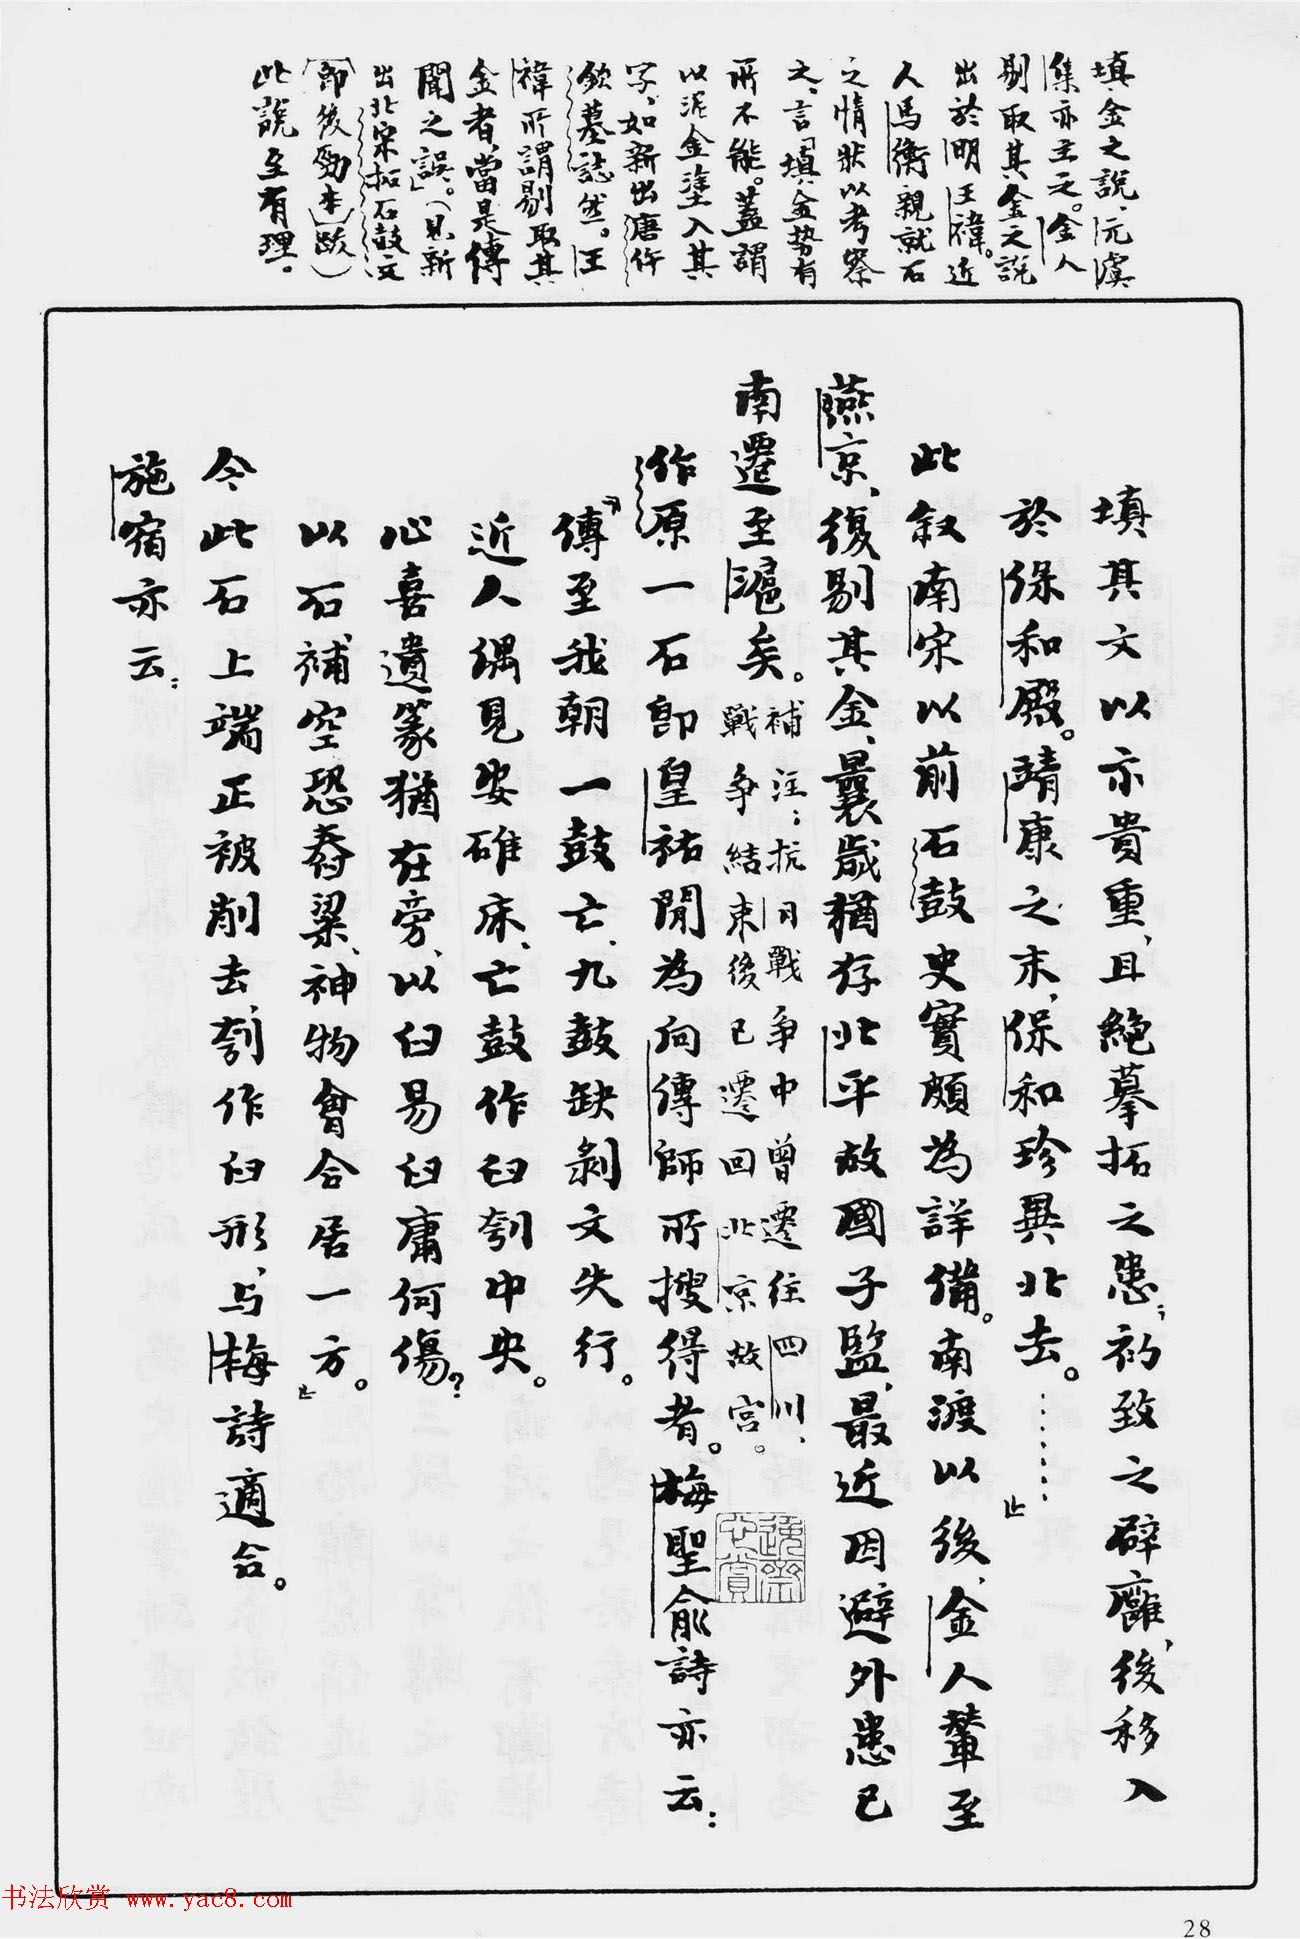 填金之說，元虞
集亦主之。金人
剔取其金之說
出於明王禕。近
人馬衡親就石
之情狀以考察
之，言「填金势有
所不能。蓋謂
以泥金塗入其
字，如新出唐仵
欽墓誌然。王
禕所謂剔取其
金者，當是傳
聞之誤」。（見新
出北宋拓石鼓文
（即後勁本）跋）
此說至有理。
填其文以示貴重，且絕摹拓之患；初致之辟廱，後移入
於保和殿。靖康之末，保和珍異北去。……」
此敘南宋以前石鼓史實頗為詳備。南渡以後，金人輦至
燕京，復剔其金，曩歲猶存北平故國子監，最近因避外患已
南遷至滬矣。
補注：抗日戰争中曾遷往四川，
戰争結束後已遷回北京故宮。
作原一石即皇祐間為向傳師所搜得者。梅聖俞詩亦云：
「傳至我朝一鼓亡，九鼓缺剝文失行。
近人偶見安碓床，亡鼓作臼刳中央。
心喜遺篆猶在旁，以臼易臼庸何傷？
以石補空恐舂粱，神物會合居一方。」
今此石上端正被削去，刳作臼形，与梅詩適合。
施宿亦云：
28
书法欣赏 www.yac8.com